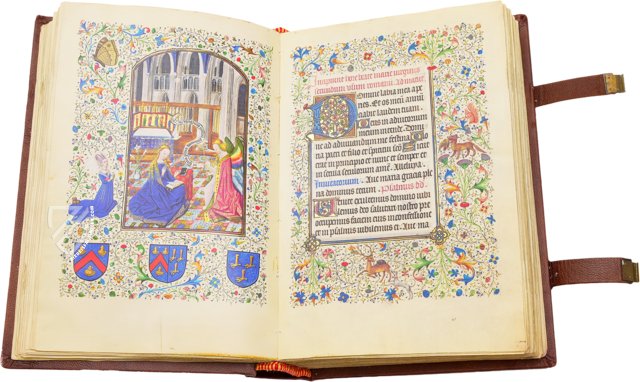 Incipiunt hore beate marie virginis
secundum usum romanum. Ad matut.
Domine labia mea ape
ries. Et os meum annu
ciabit laudem tuam.
Deus in adiutorium
meum intende. Domi
ne ad adiuvandum me festina. Glo
ria patri et filio et spiritui sco Si
cut erat in principio et nunc et semper et
in secula seculorum amen. Alleluya.
Invitatorium. Ave maria gracia ple
na dominus tecum. Psalmus dd
Venite exultemus domino iubi
lemus deo salutari nostro pre
occupemus faciem eius in confessione
et in psalmis iubilemus ei. Ave ma